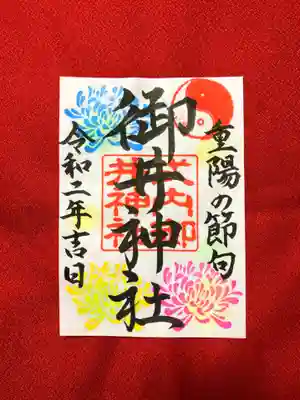 重陽の節句
御井神社
式内御
井神社
令和二年吉日